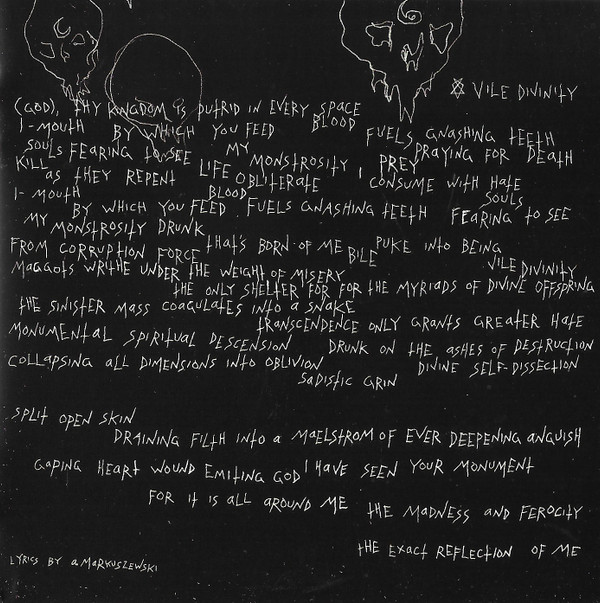 VILE DIVINITY
(GOD), THY KINGDOM IS PUTRID IN EVERY SPACE
I-MOUTH BY WHICH YOU FEED BLOOD FUELS GNASHING TEETH
SOULS FEARING TO SEE MY MONSTROSITY, I PREY PRAYING FOR DEATH
KILL AS THEY REPENT LIFE OBLITERATE I CONSUME WITH HATE
I-MOUTH BY WHICH YOU FEED BLOOD FUELS GNASHING TEETH SOULS FEARING TO SEE
MY MONSTROSITY DRUNK
FROM CORRUPTION FORCE THAT'S BORN OF ME BILE PUKE INTO BEING
MAGGOTS WRITHE UNDER THE WEIGHT OF MISERY VILE DIVINITY
THE ONLY SHELTER FOR FOR THE MYRIADS OF DIVINE OFFSPRING
THE SINISTER MASS COAGULATES INTO A SNAKE
TRANSCENDENCE ONLY GRANTS GREATER HATE
MONUMENTAL SPIRITUAL DESCENSION DRUNK ON THE ASHES OF DESTRUCTION
COLLAPSING ALL DIMENSIONS INTO OBLIVION DIVINE SELF-DISSECTION
SADISTIC GRIN
SPLIT OPEN SKIN
DRAINING FILTH INTO A MAELSTROM OF EVER DEEPENING ANGUISH
GAPING HEART WOUND EMITING GOD I HAVE SEEN YOUR MONUMENT
FOR IT IS ALL AROUND ME THE MADNESS AND FEROCITY
THE EXACT REFLECTION OF ME
LYRICS BY A.MARKUSZEWSKI